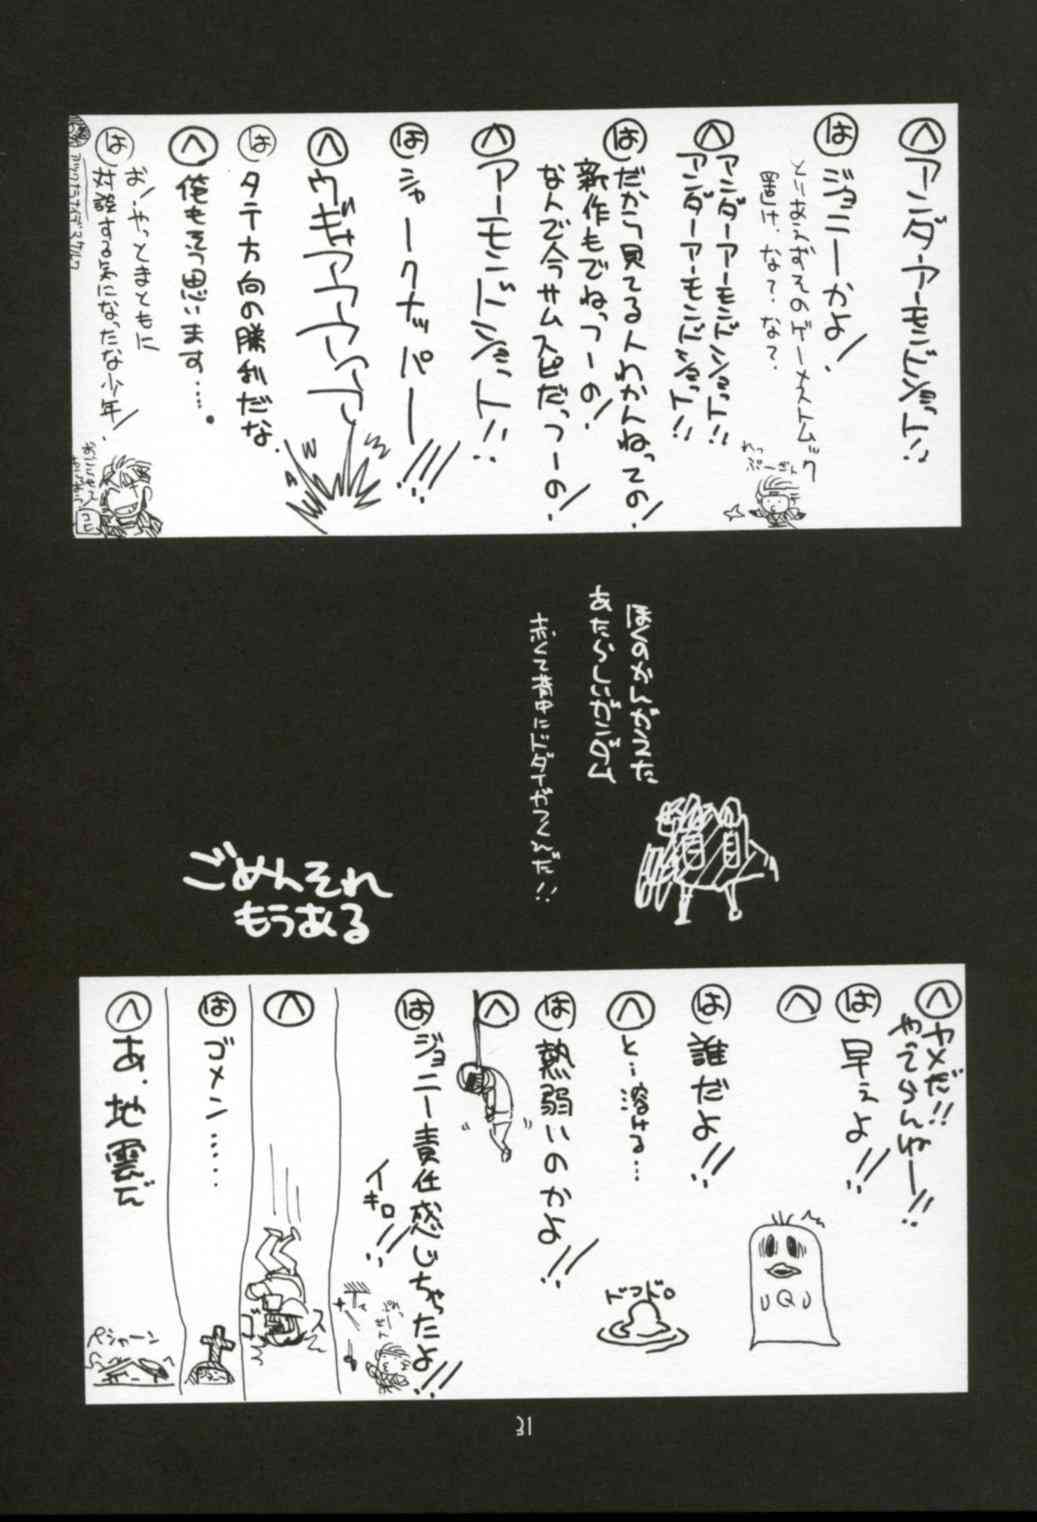 へ アンダーアーモンドショット!!
は ジョニーかよ!
とりあえずそのゲーメストムック
置け、な?、な?
へ アンダーアーモンドショット!!
アンダーアーモンドショット!!
は だから見てる人わかんねっての!
新作もでねっつーの!
なんで今サムスピだっつーの!
へ アーモンドショット!!
ほ シャークナッパー!!!
へ ウギャアアアアア
は タテ方向の勝利だな
へ 俺もそう思います……。
は お!やっとまともに
対談する気になったな少年!
ぼくのかんがえた
あたらしいガンダム
赤くて背中にドダイがつくんだ!!
ごめんそれ
もうある
へ ヤメだ!!
やってらんねー!!
は 早ぇよ!!
へ
は 誰だよ!!
Q
へ と…溶ける…
ドロドロ
は 熱弱いのかよ!!
へ
は ジョニー責任感じちゃったよ!!
イキロ!!
へ
は ゴメン……
へ あ、地震だ
ペシャーン
31